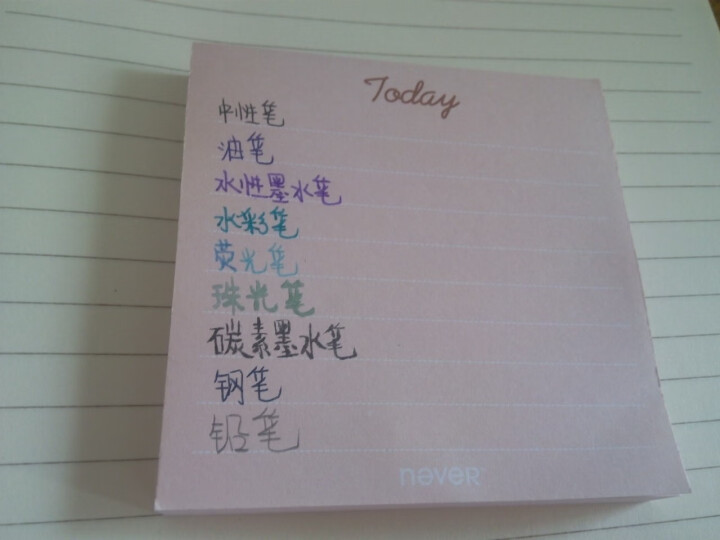 Today
中性笔
油笔
水性墨水笔
水彩笔
荧光笔
珠光笔
碳素墨水笔
钢笔
铅笔
never